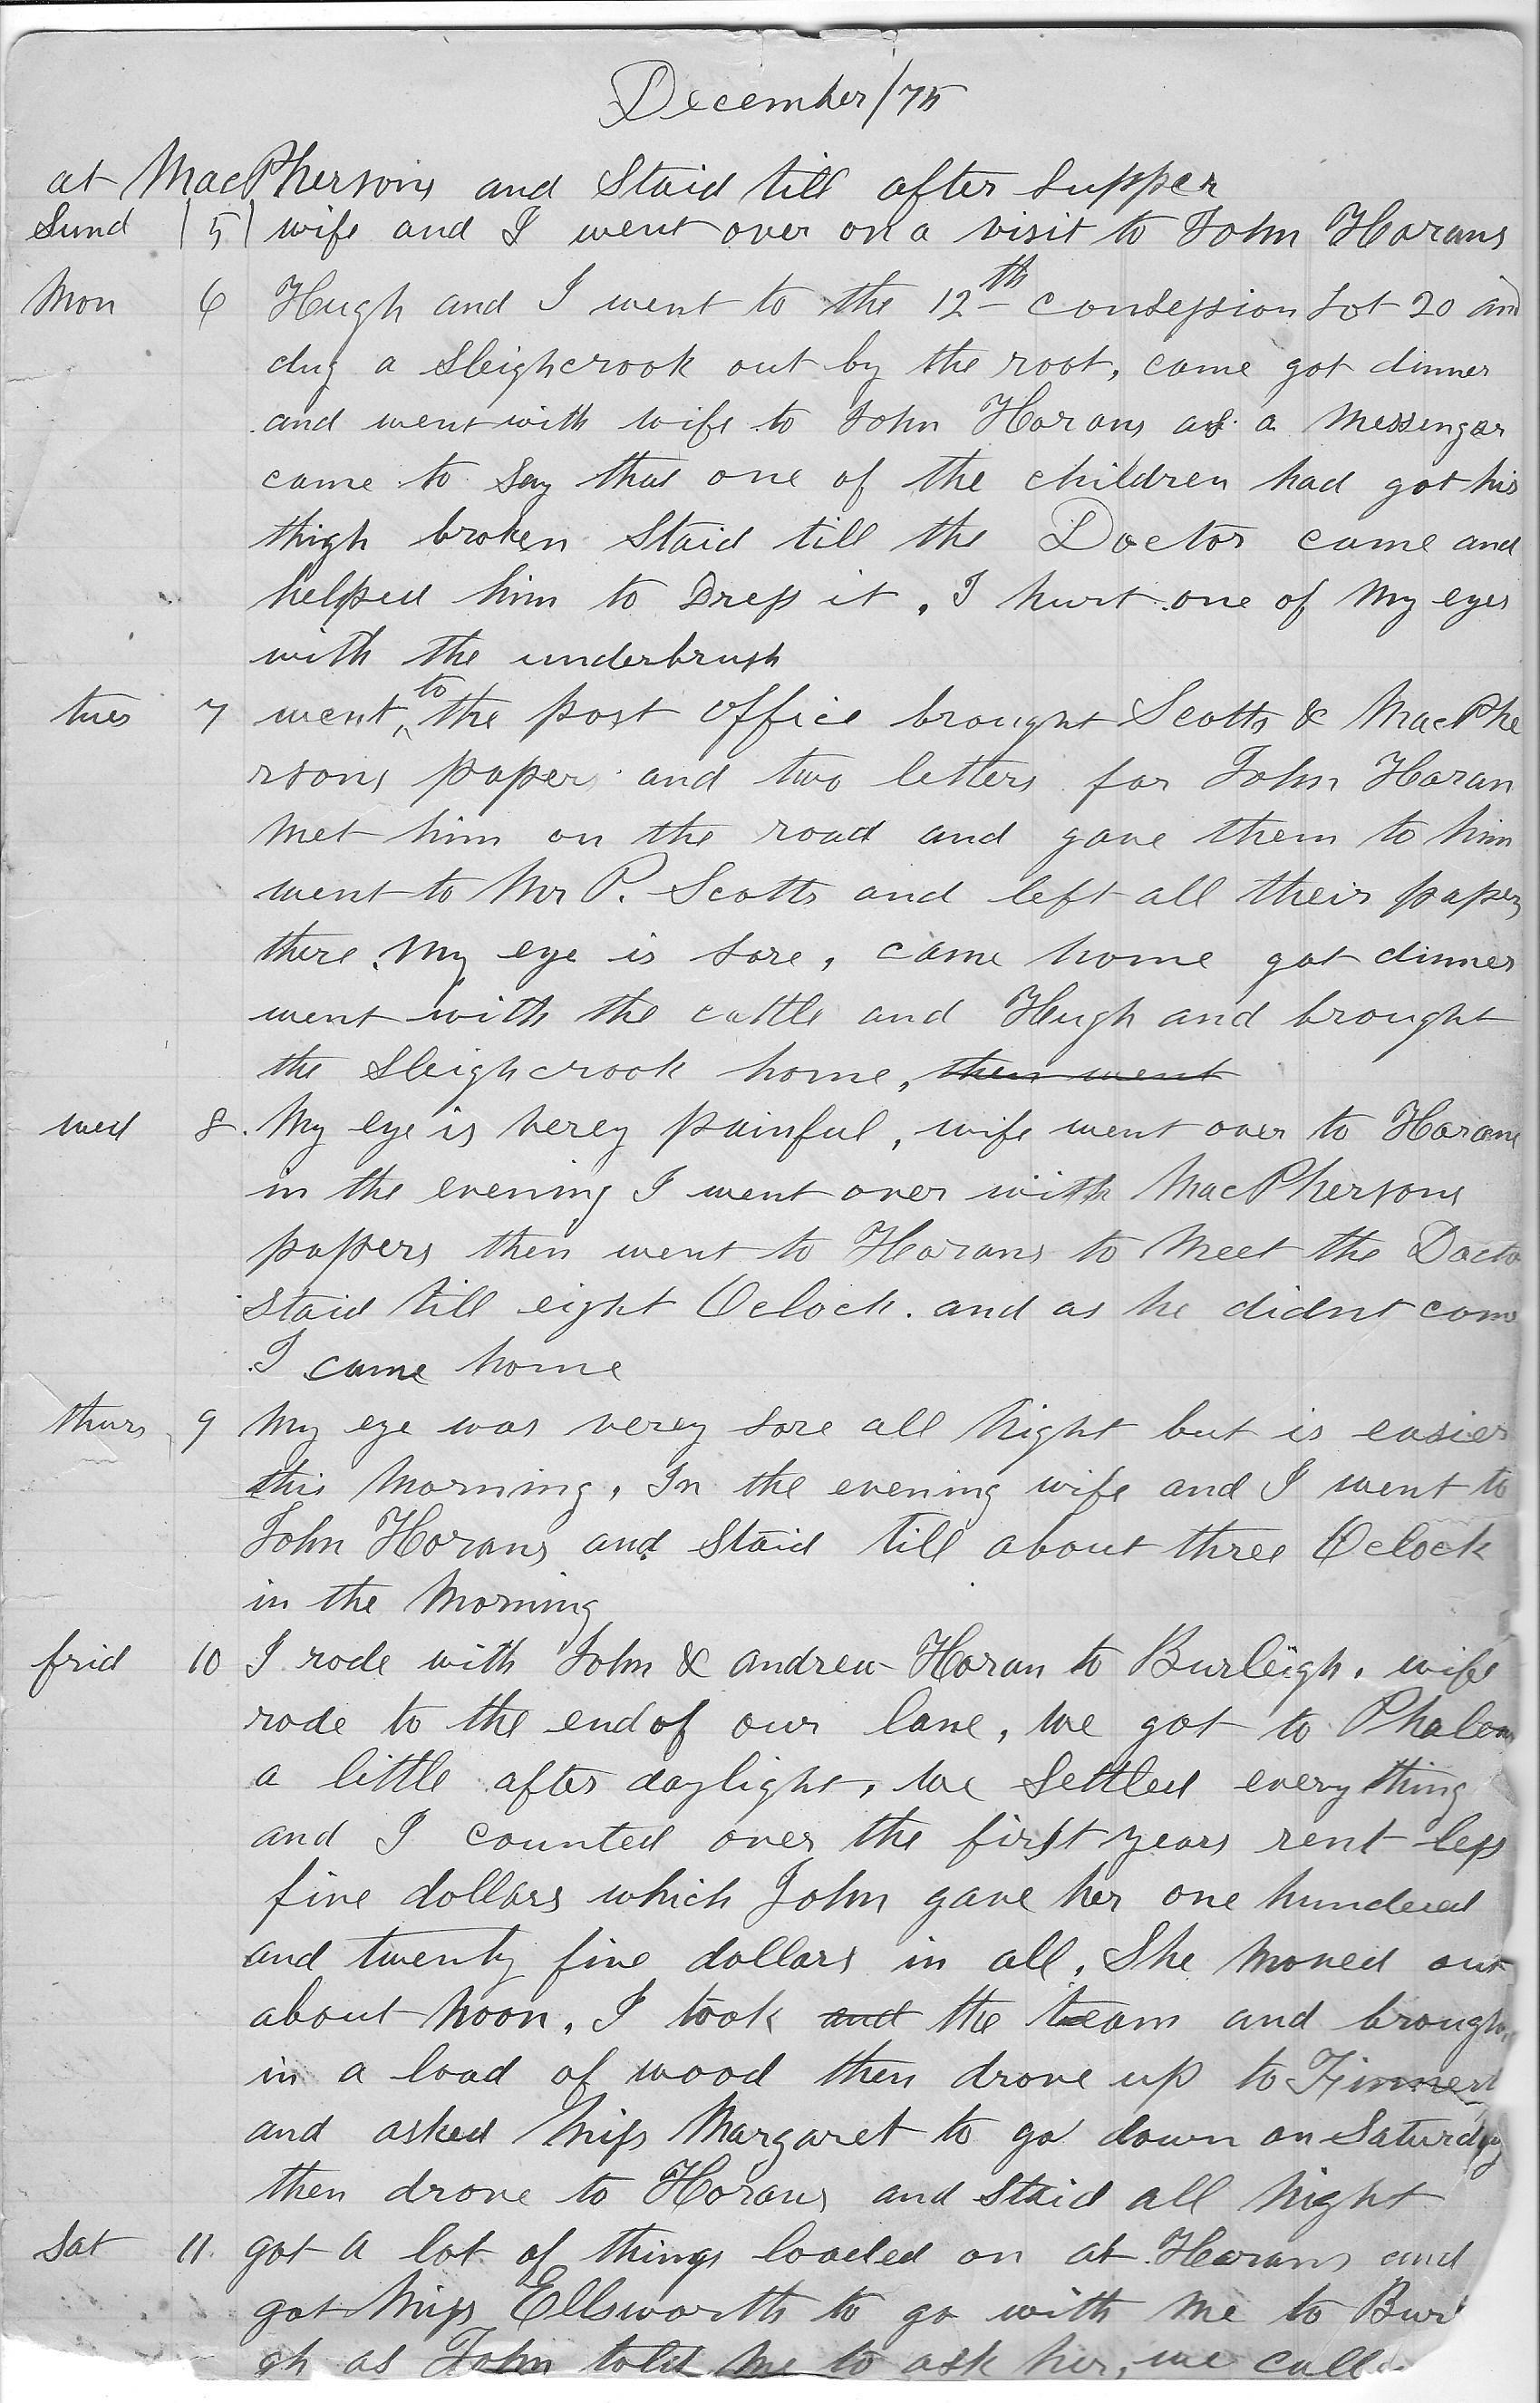 December/75
at MacPhersons and Staid till after supper
Sund 5 wife and I went over on a visit to John Horans
Mon 6 Hugh and I went to the 12th consession Lot 20 and
dug a Sleighcrook out by the root, came got dinner
and went with wife to John Horans as a Messenger
came to Say that one of the children had got his
thigh broken Staid till the Doctor came and
helped him to Dress it, I hurt one of My eyes
with the underbrush
tues 7 went to the post office brought Scotts & MacPhe
rsons papers and two letters for John Horan
Met him on the road and gave them to him
went to Mr P. Scotts and left all their papers
there, My eye is sore, came home got dinner
went with the cattle and Hugh and brought
the Sleighcrook home, then went
wed 8. My eye is verey painful, wife went over to Horans
in the evening I went over with MacPhersons
papers then went to Horans to Meet the Docto
Staid till eight Oclock. and as he didnt come
I came home
thurs 9 My eye was verey sore all Night but is easier
this Morning, In the evening wife and I went to
John Horans and Staid till about three Oclock
in the Morning
frid 10 I rode with John & andrew Horan to Burleigh, wife
rode to the end of our lane, we got to Phalens
a little after daylight, we Settled every thing
and I counted over the first years rent less
five dollars which John gave her one hundered
and twenty five dollars in all, She Moved out
about Noon, I took and the team and brought
in a load of wood then drove up to
and asked Miss Margaret to go down on Saturday
then drove to Horans and Staid all Night
Sat 11. got a lot of things loaded on at Horans and
got Miss Ellsworth to go with Me to Bur
gh as John told Me to ask her, we call